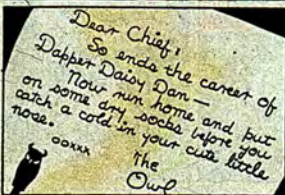 Dear Chief:
So ends the career of
Dapper Daisy Dan—
Now run home and put
on some dry socks before you
catch a cold in your cute little
nose.
ooxxx
The
Owl